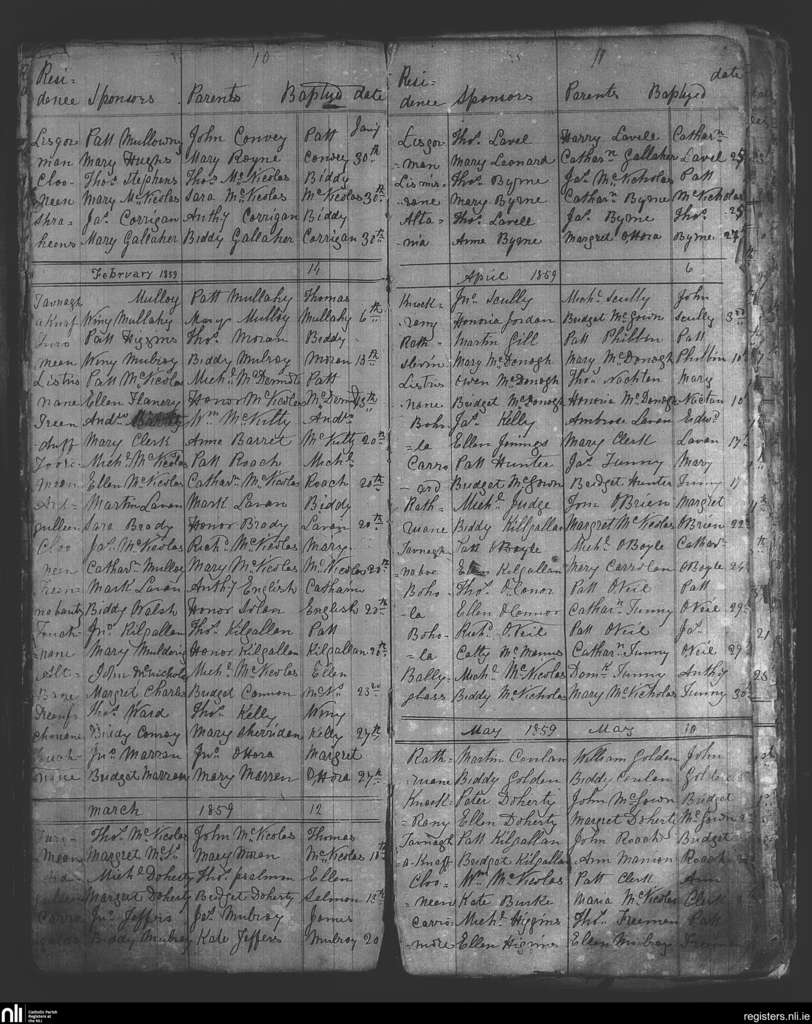 10
Resi=
dence Sponsors Parents Baptysd date
Jany
Lisgor Patt Mullowny John Convey Patt
man Mary Hughs Mary Royne Convey 30th
Cloo= Thos Stephens Thos McNicolas Biddy
neen Mary McNicolas Sara McNicolas McNicolas 30th
shra= Jas Corrigan Anthy Corrigan Biddy
heens Mary Gallaher Biddy Gallaher Corrigan 30th
February 1859 14
Tavnagh Mulloy Patt Mullahy Thomas
a Knaf Winy Mullahy Mary Mulloy Mullahy 6th
Patt Higgins Thos Moran Biddy
meen Winy Mulroy Biddy Mulroy Moran 13th
Listris Patt McNicolas Michl McDermott Patt
nane Ellen Flanery Honor McNicolas McDermott 13th
Treen Andw Wm McNitty Andw
duff Mary Clerk Anne Barret McNitty 20th
Toore Michl McNicolas Patt Roach Michl
moon Ellen McNicolas Catharn McNicolas Roach 20th
Ard= Martin Lavan Mark Lavan Biddy
gullen Sara Brady Honor Brady Lavan 20th
Cloo Jas McNicolas Richd McNicolas Mary
neen Catharn Mulloy Mary McNicolas McNicolas 20th
Mark Lavan Anthy English Catharne
Biddy Walsh Honor Solan English 20th
Jno Kilgallan Thos Kilgallan Patt
nane Mary Muldoing Honor Kilgallan Kilgallan 20th
John McNicholas Michl McNicolas Ellen
Margret Charles Bridget Cannon McNs 23rd
Thos Ward Thos Kelly Winy
Biddy Convey Mary Sherridan Kelly 27th
Jno Marran Jno OHora Margret
nane Bridget Marran Mary Marren O,Hora 27th
March 1859 12
Thos McNicolas John McNicolas Thomas
meen Margret McNs Mary Moran McNicolas 10th
Michl Doherty Thos psalmon Ellen
Margret Doherty Bridget Doherty Selmon 13th
Carro Jno Jeffers Jas Mulroy James
Biddy Mulroy Kate Jeffers Mulroy 20
11
Resi= date
dence Sponsors Parents Baptysd
Lisgor Thos Lavel Harry Lavelle Catharn
=man Mary Leonard Catharn Gallaher Lavel 25
Lismis= Thos Byrne Jas McNicholas Patt
rane Mary Byrne Catharn Byrne McNicholas 25
Alta= Thos Lavell Jas Byrne Thos
=nia Anne Byrne Margret OHora Byrne 27th
April 1859 6
Knock= Jno Scully Michl Scully John
ramy Honoria Jordan Budget McGown Scully 3rd
Rath= Martin Gill Patt Philbin Patt
slevin Mary McDonogh Mary McDonagh Philbin 10th
Listris Owen McDonogh Thos Nochton Mary
nane Bridget McDonogh Honoria McDonogh Nocton 10
Boho Jas Kelly Ambrose Lavan Edwd
=la Ellen Jenings Mary Clerk Lavan 17th
Carro Patt Hunter Jas Tunny Mary
=ard Budget McGown Bridget Hunter Tunny 17
Rath= Michl Judge Tom OBrien Margret
ruane Biddy Kilgallan Margret McNicolas OBrien 22
Tavnagh Patt OBoyle Michl OBoyle Catharn
Kilgallan Mary Carrolan OBoyle 24
Boho= Thos OConor Patt ONeil Patt
=la Ellen OConnor Catharn Tunny ONeil 29th
Boho= Richd ONeil Patt ONeil Jas
=la Catty McManus Catharn Tunny ONeil 29
Bally= Michl McNicolas Domk Tunny Anthy
glass Biddy McNicholas Mary McNicholas Tunny 30
May 1859 May 10
Rath= Martin Conlan William Golden John
ruane Biddy Golden Biddy Conlan Golden
Knock= Peter Doherty John McGown Bridget
=Ramy Ellen Doherty Margret Dohert McGown
Tavnagh Patt Kilgallan John Roach Bridget
a-Knaff Bridget Kilgallan Ann Manion Roach
Cloo= Wm McNicolas Patt Clerk Ann
neen Kate Burke Maria McNicolas Clerk
Carro= Michl Higgins Thos Freeman Patt
more Ellen Higgins Ellen Mulroy Freeman
nli
Catholic Parish
Registers at
the NLI
registers.nli.ie